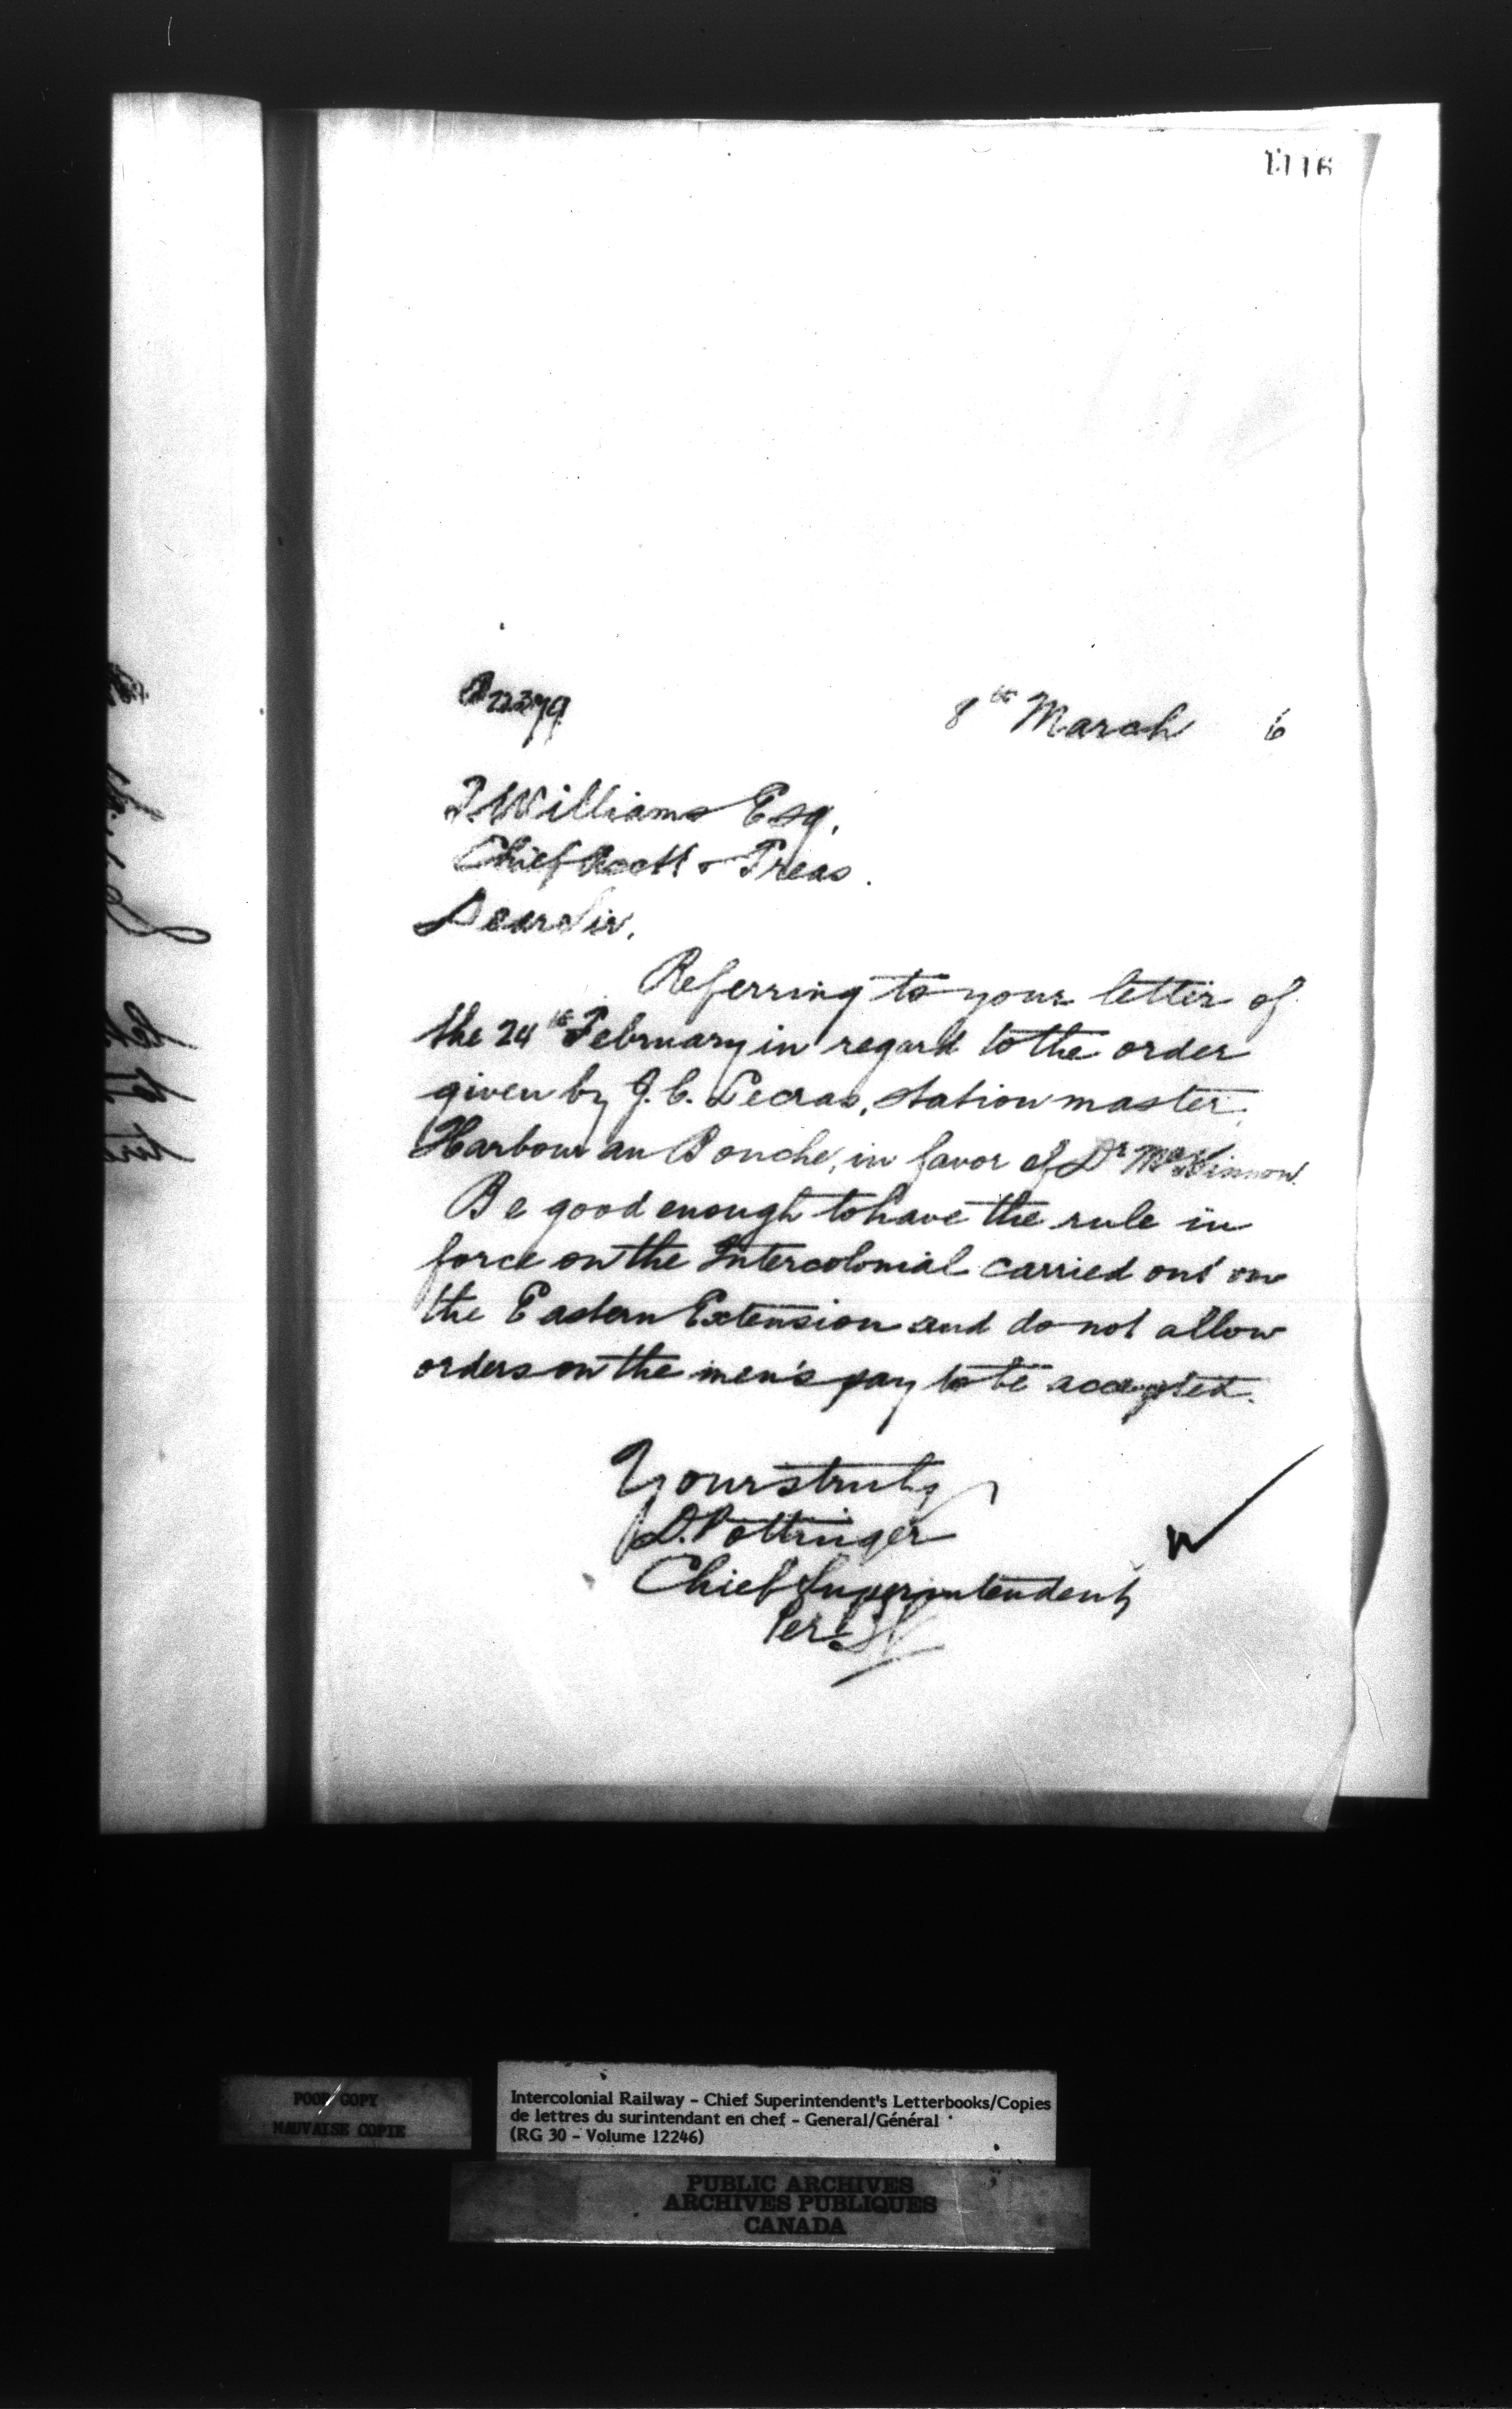 1116
22379
8th March 6
T. Williams Esq.
Chief Acctt & Treas.
Dear Sir,
Referring to your letter of
the 24th February in regard to the order
given by J. C. station master,
Harbour au Bouche, in favor of Dr McKinnon.
Be good enough to have the rule in
force on the Intercolonial carried out on
the Eastern Extension and do not allow
orders on the men's pay to be accepted.
Yours truly
D. Pottinger
Chief Superintendent
Per
POOR COPY
MAUVAISE COPIE
Intercolonial Railway - Chief Superintendent's Letterbooks/Copies
de lettres du surintendant en chef - General/Général
(RG 30 - Volume 12246)
PUBLIC ARCHIVES
ARCHIVES PUBLIQUES
CANADA